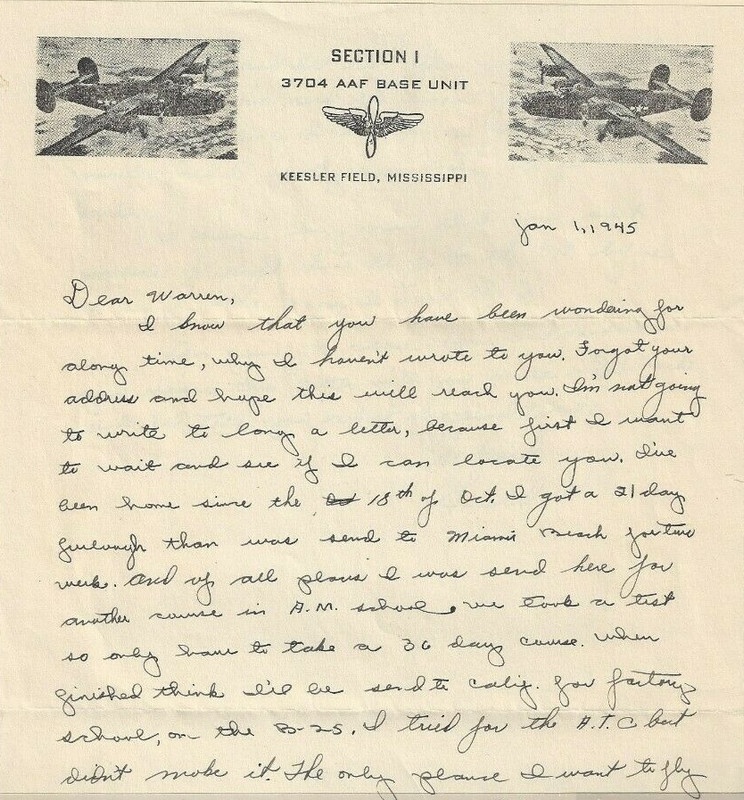 SECTION I
3704 AAF BASE UNIT
KEESLER FIELD, MISSISSIPPI
Jan 1, 1945
Dear Warren,
I know that you have been wondering for
along time, why I haven't wrote to you. Forgot your
address and hope this will reach you. I'm not going
to write to long a letter, because first I want
to wait and see if I can locate you. I've
been home since the 18th of Oct. I got a 21 day
furlough than was send to Miami Beach for two
week. And of all places I was send here for
another course in A.M. school, we took a test
so only have to take a 36 day course. When
finished think I'll be send to Calif. for factory
school, on the B-25. I tried for the A.T.C but
didn't make it. The only I want to fly